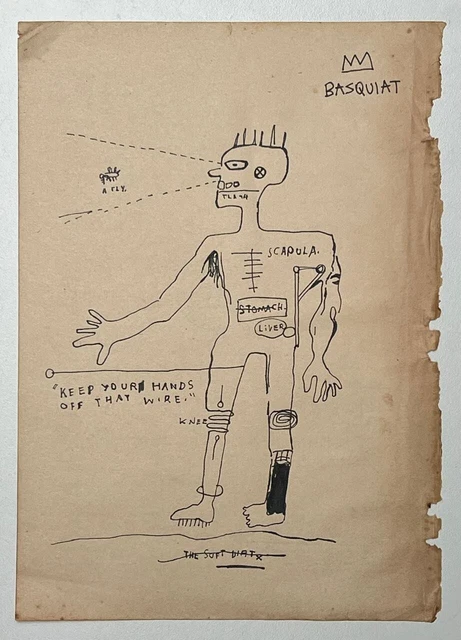 BASQUIAT
A FLY.
SCAPULA.
STOMACH.
LIVER
"KEEP YOUR HANDS
OFF THAT WIRE."
KNEE
THE SOFT DIRT